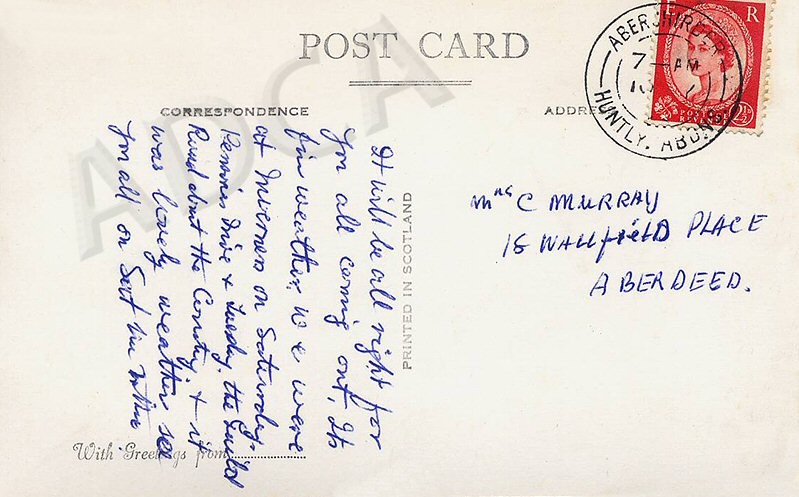 POST CARD
CORRESPONDENCE
ADDRESS
E R
POSTAGE
REVENUE
2½D
ABERCHIRDER
7 - AM
HUNTLY. ABDNS
ADCA
It will be all right for
you all coming out, Its
fin weather. We were
at Inverness on Saturday.
Drive & Tuesday. the Guild
Round about the County, & it
was lovely weather see
you all on Sat
PRINTED IN SCOTLAND
Mrs C MURRAY
18 WALLfiELD PLACE
ABERDEED.
With Greetings from